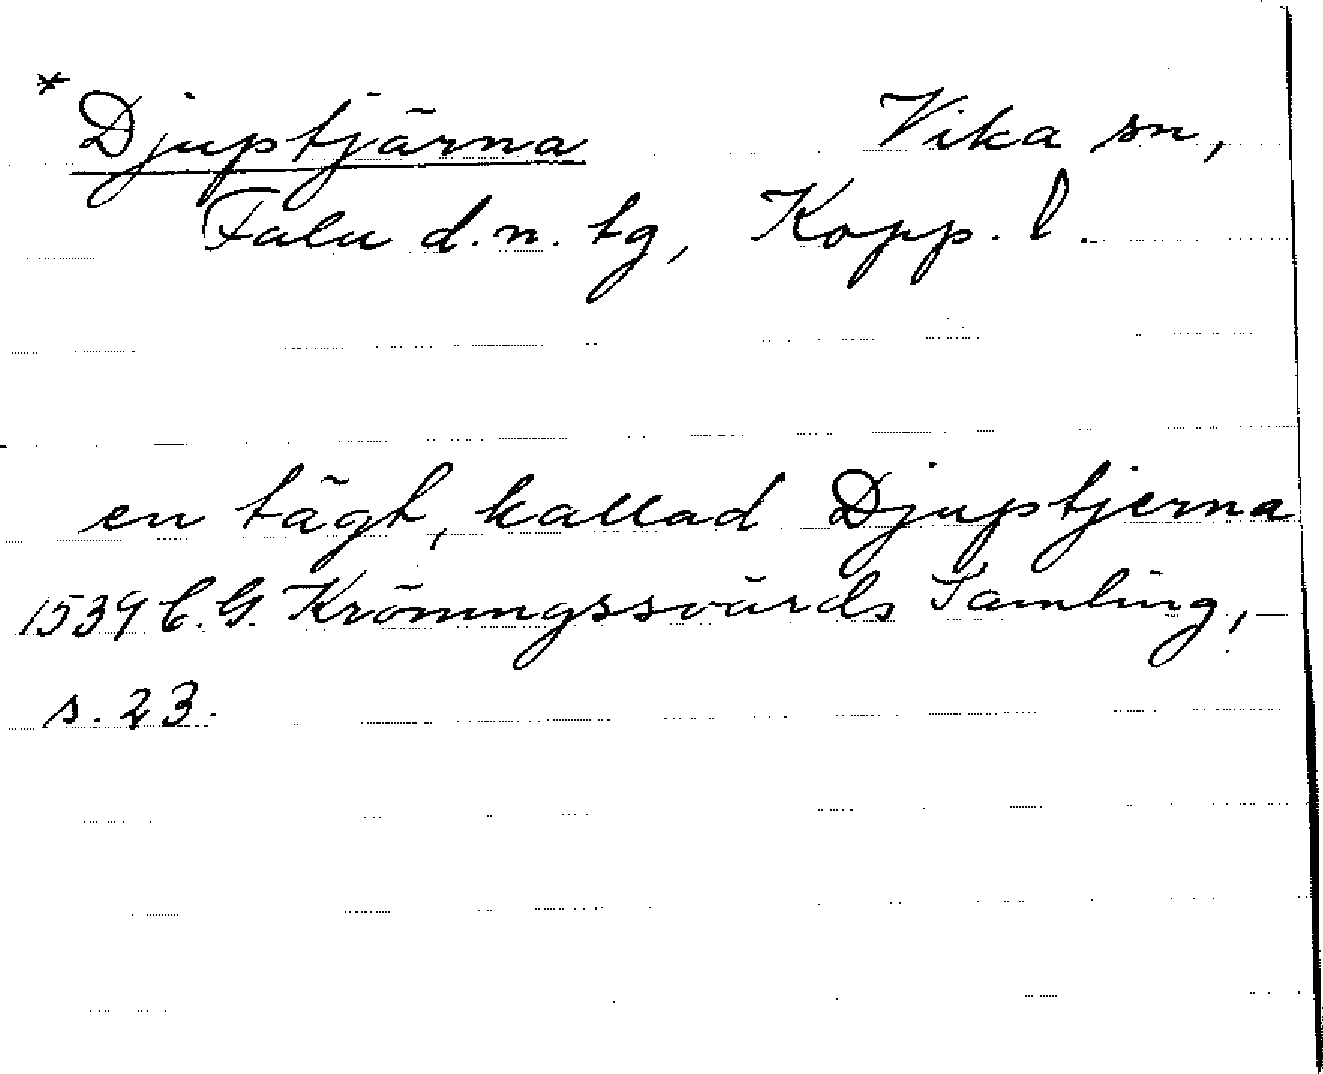 * Djuptjärna Vika sn,
Falu d.n. tg, Kopp. l.
en tägt, kallad Djuptjerna
1539 C.G. Kröningssvärds Samling,-
s. 23.